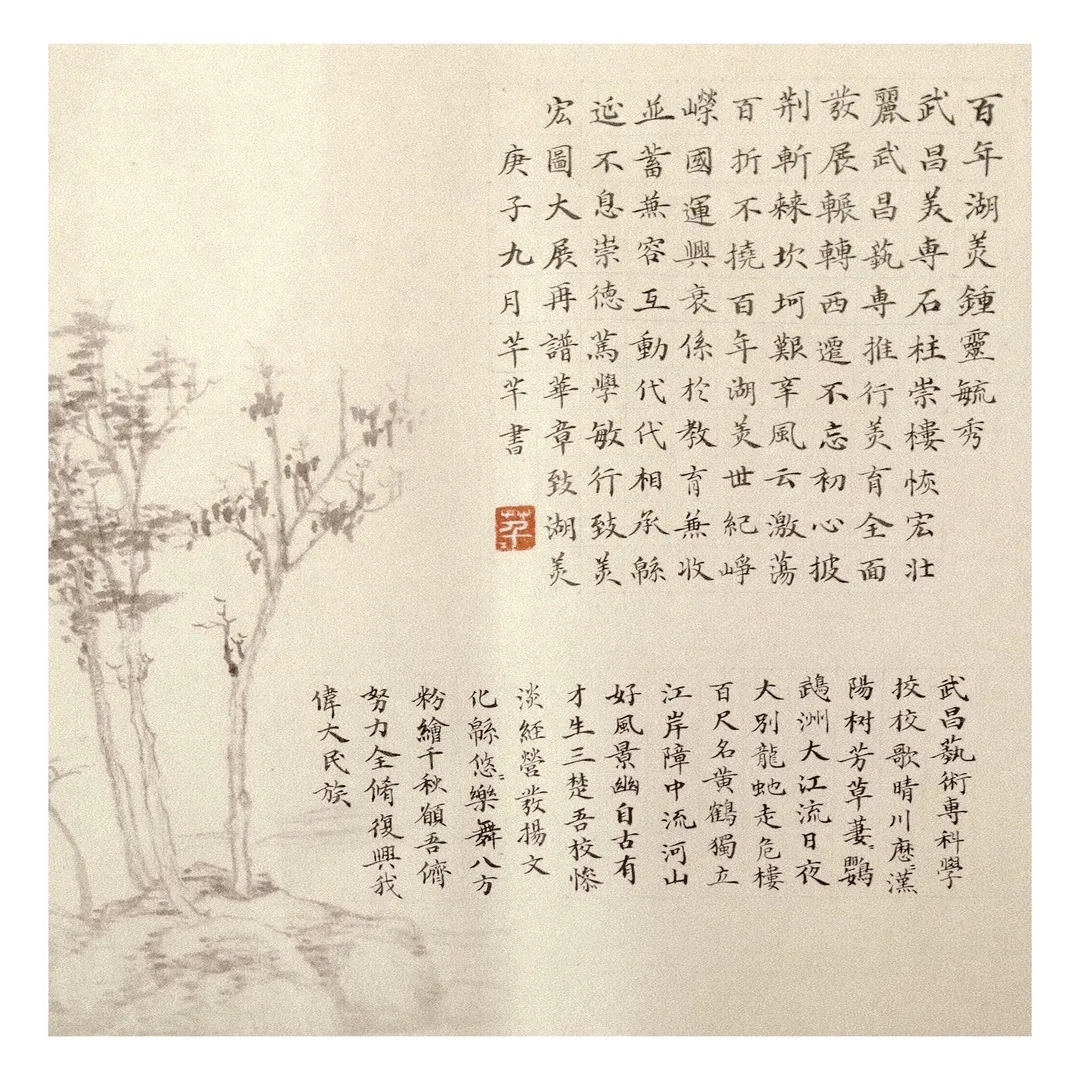 百年湖美鍾靈毓秀
武昌美専石柱崇樓恢宏壯
麗武昌藝専推行美育全面
發展輾轉西遷不忘初心披
荆斬棘坎坷艱辛風云激蕩
百折不撓百年湖美世紀崢
嶸國運興衰係於教育兼收
並蓄兼容互動代代相承緜
延不息崇德篤學敏行致美
宏圖大展再譜華章致湖美
庚子九月芊芊書
武昌藝術専科學
挍校歌晴川歷〻漢
陽树芳草萋〻鸚
鵡洲大江流日夜
大別龍虵走危樓
百尺名黄鶴獨立
江岸障中流河山
好風景幽自古有
才生三楚吾校慘
淡経營發揚文
化緜悠〻樂舞八方
粉繪千秋願吾儕
努力全脩復興我
偉大民族